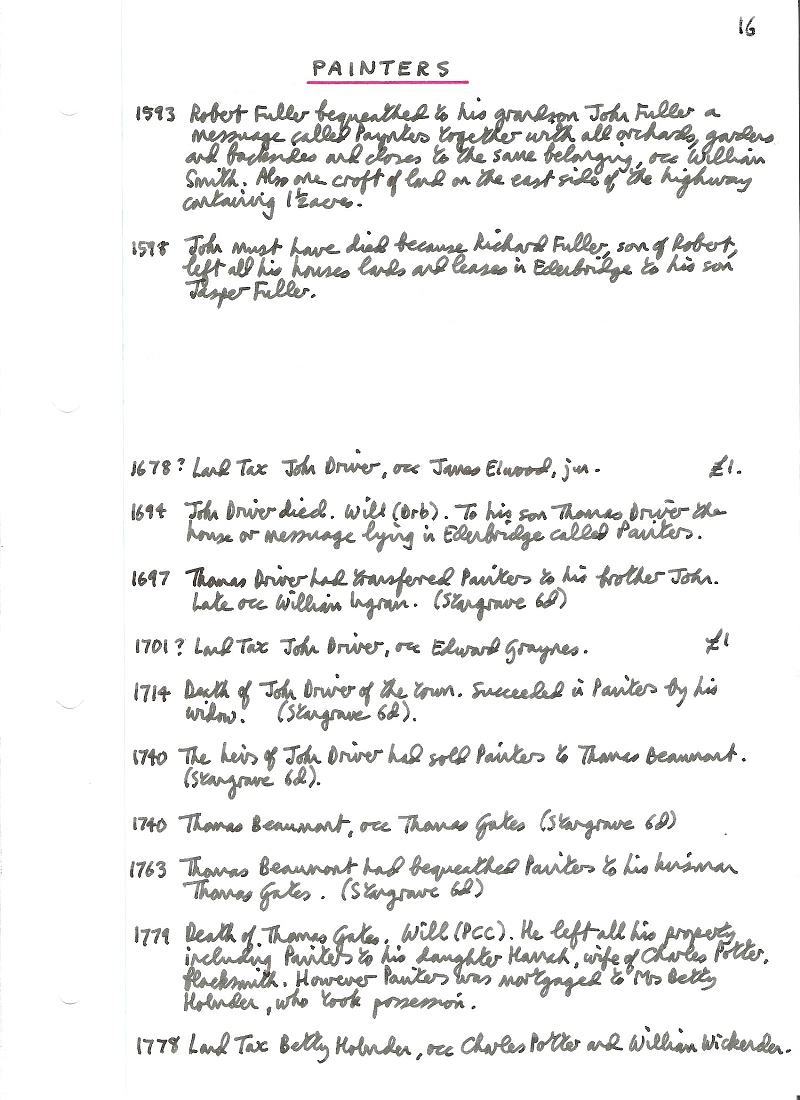 16
PAINTERS
1593 Robert Fuller bequeathed to his grandson John Fuller a
messuage called Paynters together with all orchards, gardens
and backsides and closes to the same belonging, occ William
Smith. Also one croft of land on the east side of the highway
containing 1½ acres.
1598 John must have died because Richard Fuller, son of Robert,
left all his houses lands and leases in Edenbridge to his son
Jasper Fuller.
1678? Land Tax John Driver, occ James Elwood, jun. £1.
1694 John Driver died. Will (Drb). To his son Thomas Driver the
house or messuage lying in Edenbridge called Painters.
1697 Thomas Driver had transferred Painters to his brother John.
Late occ William Ingram. (Stangrave 6d)
1701? Land Tax John Driver, occ Edward Graynes. £1
1714 Death of John Driver of the town. Succeeded in Painters by his
widow. (Stangrave 6d).
1740 The heirs of John Driver had sold Painters to Thomas Beaumont.
(Stangrave 6d).
1740 Thomas Beaumont, occ Thomas Gates (Stangrave 6d)
1763 Thomas Beaumont had bequeathed Painters to his kinsman
Thomas Gates. (Stangrave 6d)
1779 Death of Thomas Gates. Will (PCC). He left all his property
including Painters to his daughter Hannah, wife of Charles Potter,
blacksmith. However Painters was mortgaged to Mrs Betty
Holmden, who took possession.
1778 Land Tax Betty Holmden, occ Charles Potter and William Wickenden.